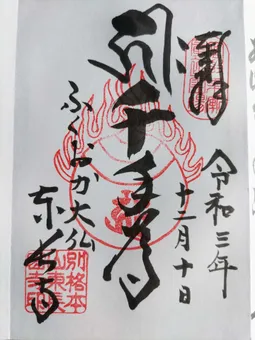 奉拝
令和三年
十二月十日
千手
ふくおか大仏
東長寺
別格本
山東長
寺印